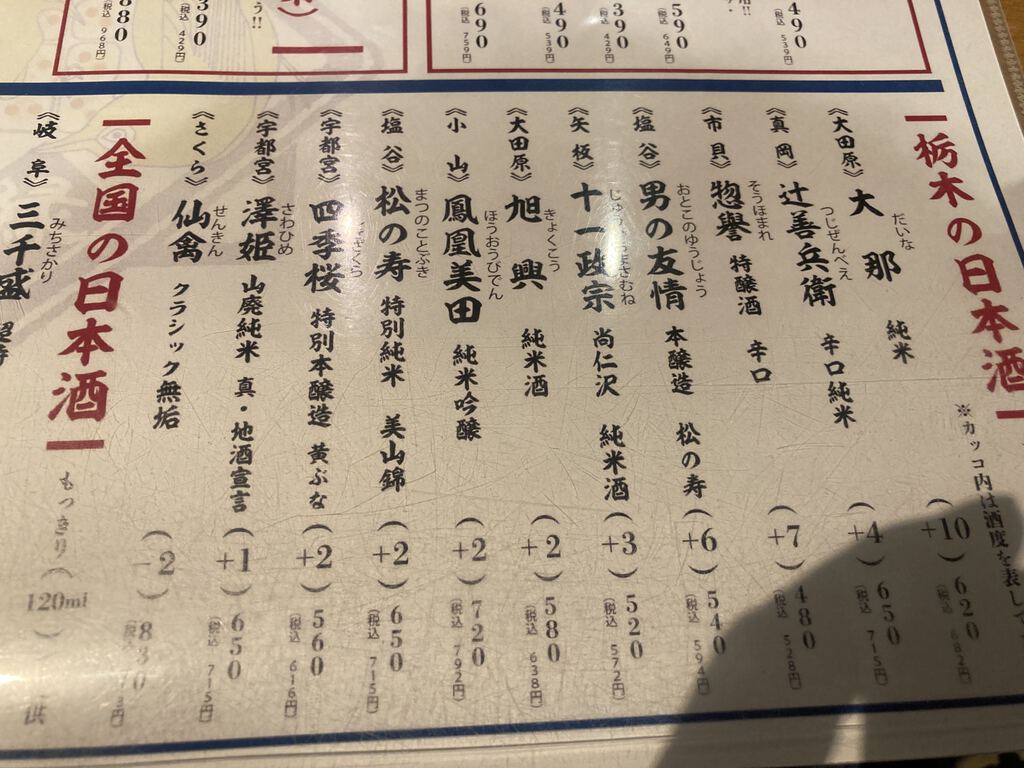 490
(税込 539円)
590
(税込 649円)
390
(税込 429円)
490
(税込 539円)
690
(税込 759円)
う!!
390
(税込 429円)
880
(税込 968円)
栃木の日本酒
※カッコ内は酒度を表して
《大田原》大那 だいな 純米 (+10) 620 (税込 682円)
《真岡》辻善兵衛 つじぜんべえ 辛口純米 (+4) 650 (税込 715円)
《市貝》惣譽 そうほまれ 特醸酒 辛口 (+7) 480 (税込 528円)
《塩谷》男の友情 おとこのゆうじょう 本醸造 松の寿 (+6) 540 (税込 594円)
《矢板》十一政宗 尚仁沢 純米酒 (+3) 520 (税込 572円)
《大田原》旭興 きょくこう 純米酒 (+2) 580 (税込 638円)
《小山》鳳凰美田 ほうおうびでん 純米吟醸 (+2) 720 (税込 792円)
《塩谷》松の寿 まつのことぶき 特別純米 美山錦 (+2) 650 (税込 715円)
《宇都宮》四季桜 特別本醸造 黄ぶな (+2) 560 (税込 616円)
《宇都宮》澤姫 さわひめ 山廃純米 真・地酒宣言 (+1) 650 (税込 715円)
《さくら》仙禽 せんきん クラシック無垢 (-2) 830 (税込
全国の日本酒
もっきり(120ml)
《岐阜》三千盛 みちさかり